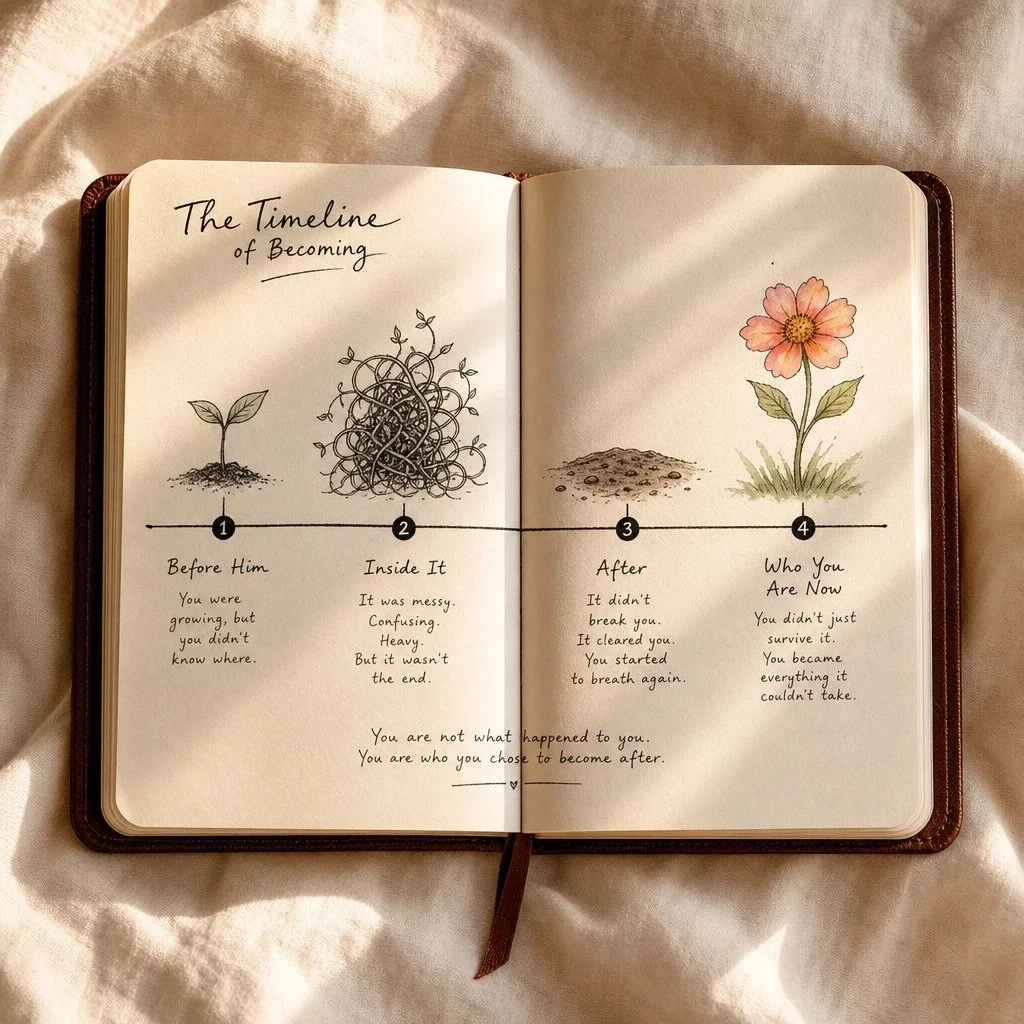 The Timeline
of Becoming
1
Before Him
You were
growing, but
you didn't
know where.
2
Inside It
It was messy.
Confusing.
Heavy.
But it wasn't
the end.
3
After
It didn't
break you.
It cleared you.
You started
to breath again.
4
Who You
Are Now
You didn't just
survive it.
You became
everything it
couldn't take.
You are not what happened to you.
You are who you chose to become after.